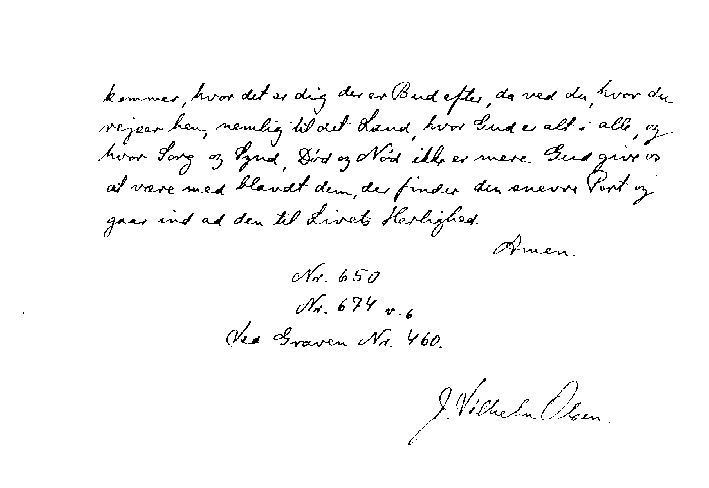 kommer, hvor det er dig der er Bud efter, da ved du, hvor du
rejser hen, nemlig til det Land, hvor Gud er alt i alle, og
hvor Sorg og Synd, Død og Nød ikke er mere. Gud give os
at være med blandt dem, der finder den snevre Port og
gaar ind ad den til Livets Herlighed.
Amen.
Nr. 650
Nr. 674 v. 6
Ved Graven Nr. 460.
J. Vilhelm Olsen.